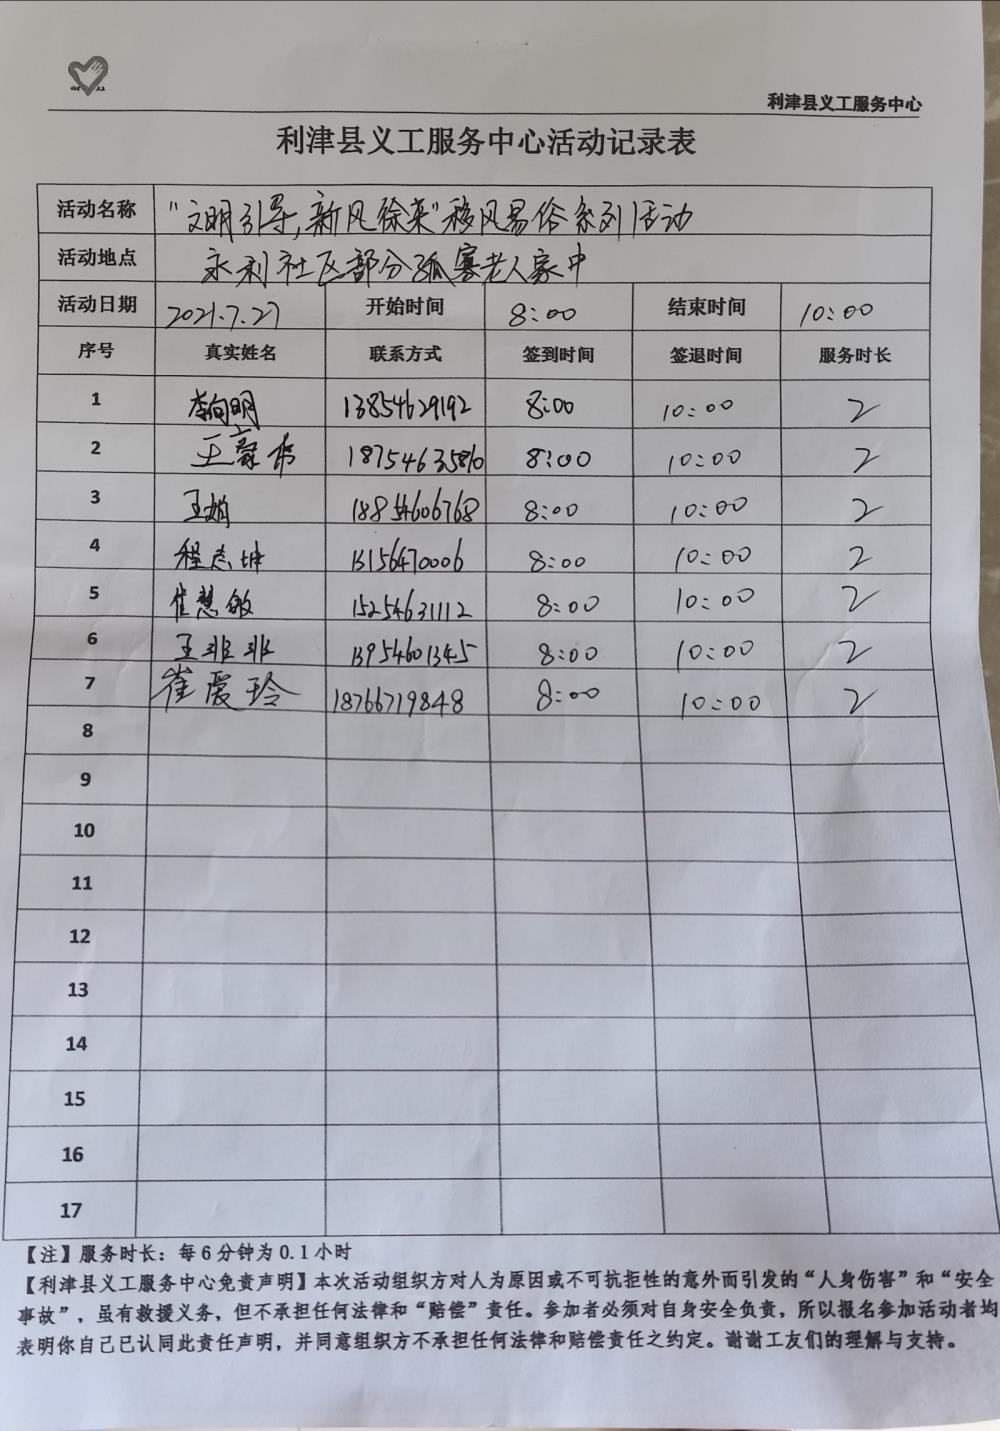 利津县义工服务中心
利津县义工服务中心活动记录表
活动名称 "文明引导,新风徐来"移风易俗系列活动
活动地点 永利社区部分孤寡老人家中
活动日期 2021.7.27 开始时间 8:00 结束时间 10:00
序号 真实姓名 联系方式 签到时间 签退时间 服务时长
1 李向明 13854629192 8:00 10:00 2
2 王豪伟 18754635810 8:00 10:00 2
3 王娟 18854606768 8:00 10:00 2
4 程志坤 13156470006 8:00 10:00 2
5 崔慧敏 15254631112 8:00 10:00 2
6 王非非 13954601345 8:00 10:00 2
7 崔爱玲 18766719848 8:00 10:00 2
8
9
10
11
12
13
14
15
16
17
【注】服务时长：每6分钟为0.1小时
【利津县义工服务中心免责声明】本次活动组织方对人为原因或不可抗拒性的意外而引发的“人身伤害”和“安全
事故”，虽有救援义务，但不承担任何法律和“赔偿”责任。参加者必须对自身安全负责，所以报名参加活动者均
表明你自己已认同此责任声明，并同意组织方不承担任何法律和赔偿责任之约定。谢谢工友们的理解与支持。